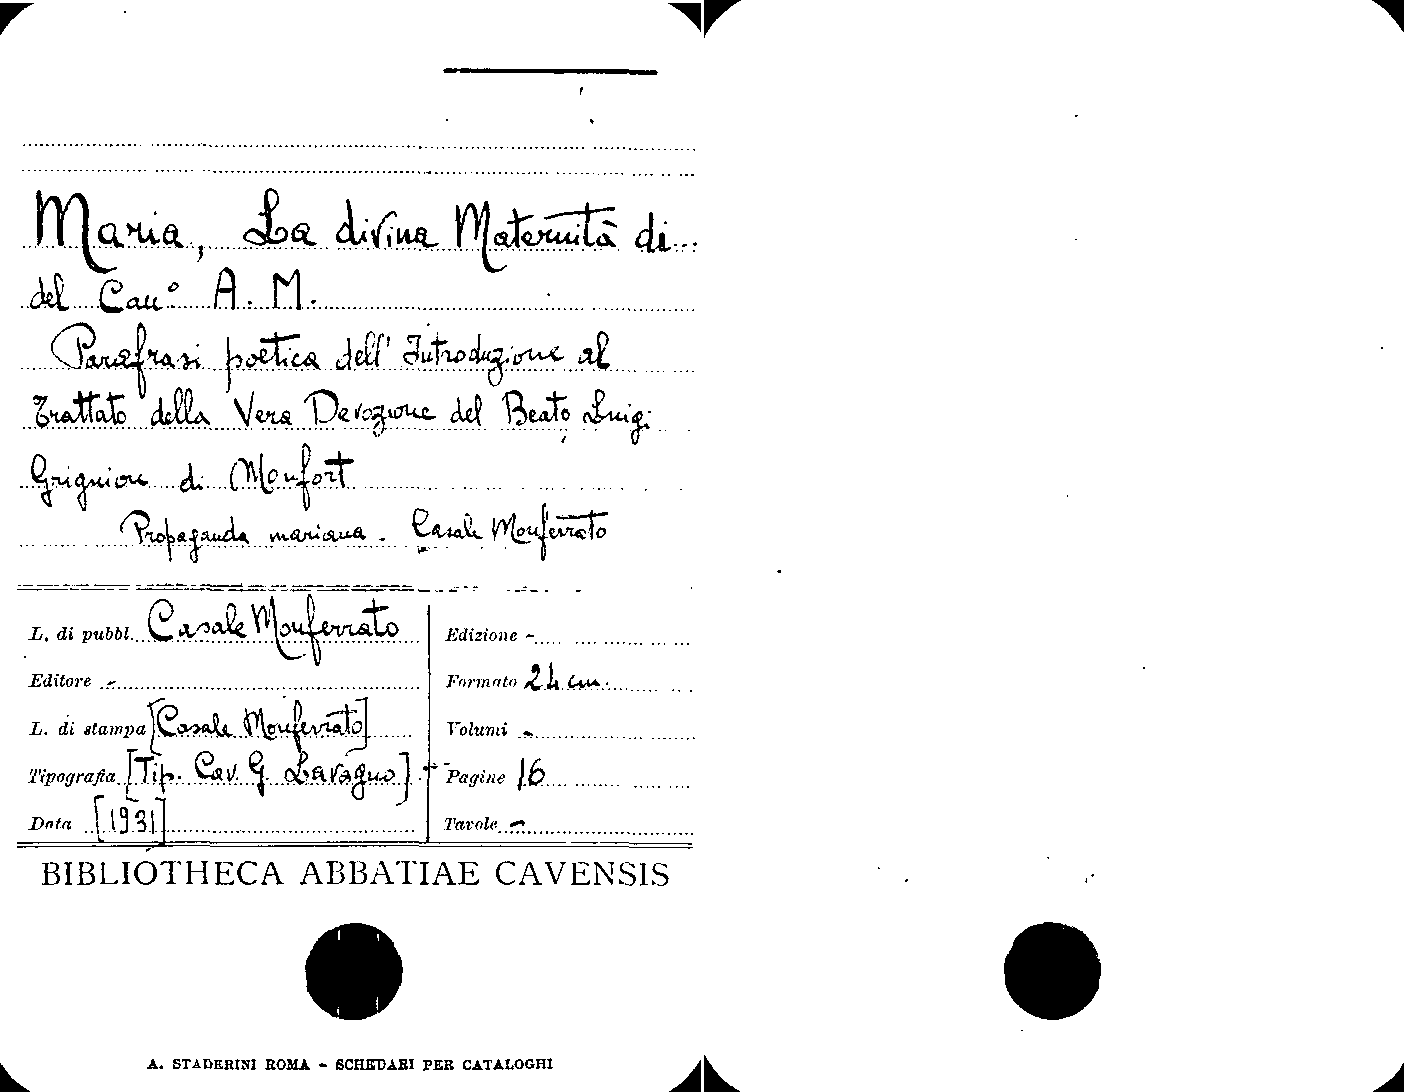 Maria, La divina Maternità di...
del Can° A. M.
Parafrasi poetica dell' Introduzione al
Trattato della Vera Devozione del Beato Luigi
Grignion di Monfort
Propaganda mariana - Casale Monferrato
L. di pubbl. Casale Monferrato
Editore -
L. di stampa [Casale Monferrato]
Tipografia [Tip. Cav. G. Lavagno]
Data [1931]
Edizione -
Formato 24 cm.
Volumi -
Pagine 16
Tavole -
BIBLIOTHECA ABBATIAE CAVENSIS
A. STADERINI ROMA - SCHEDARI PER CATALOGHI